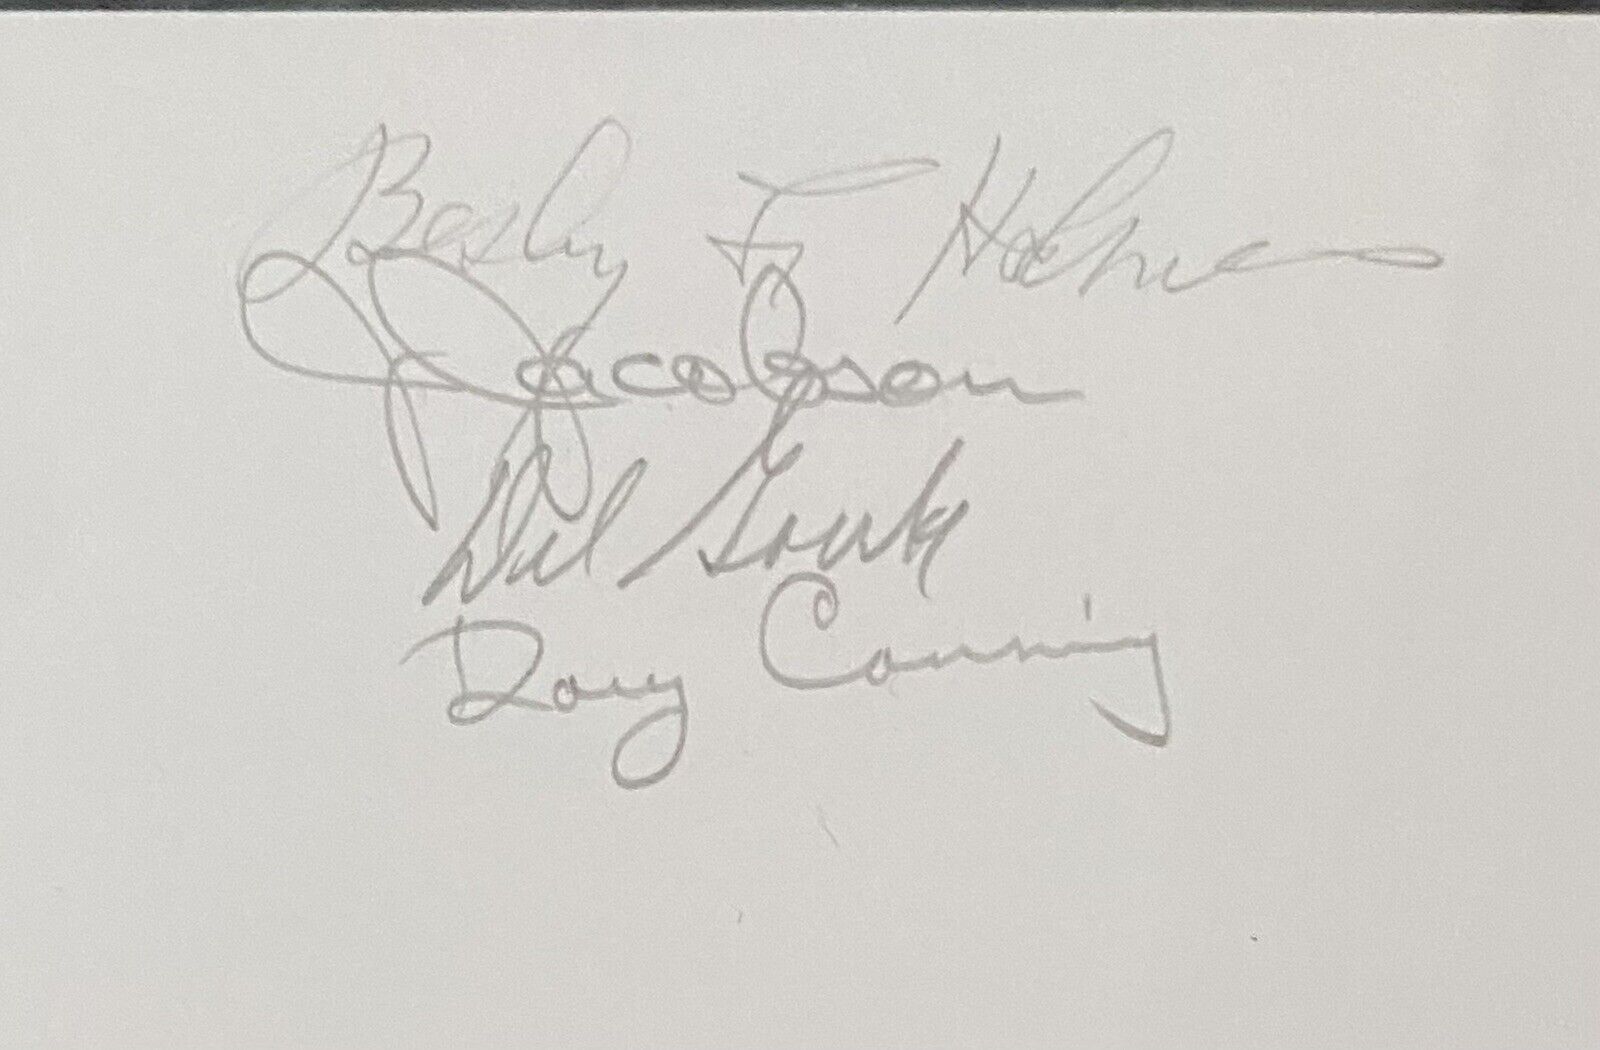 Besby F. Holmes
J Jacobson
Del Goerke
Doug Canning